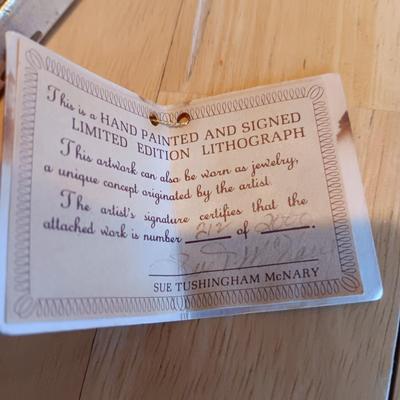 This is a HAND PAINTED AND SIGNED
LIMITED EDITION LITHOGRAPH
This artwork can also be worn as jewelry,
a unique concept originated by the artist.
The artist's signature certifies that the
attached work is number 212 of 2000.
Sue T McNary
SUE TUSHINGHAM McNARY